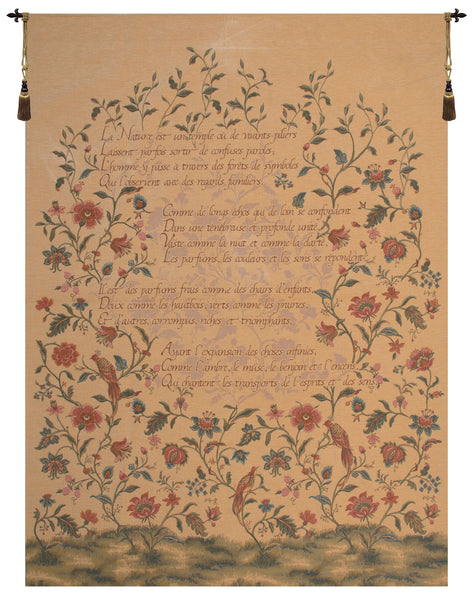 La Nature est un temple où de vivants piliers
Laissent parfois sortir de confuses paroles;
L'homme y passe à travers des forêts de symboles
Qui l'observent avec des regards familiers.
Comme de longs échos qui de loin se confondent
Dans une ténébreuse et profonde unité,
Vaste comme la nuit et comme la clarté,
Les parfums, les couleurs et les sons se répondent.
Il est des parfums frais comme des chairs d'enfants,
Doux comme les hautbois, verts comme les prairies,
Et d'autres, corrompus, riches et triomphants,
Ayant l'expansion des choses infinies,
Comme l'ambre, le musc, le benjoin et l'encens,
Qui chantent les transports de l'esprit et des sens.